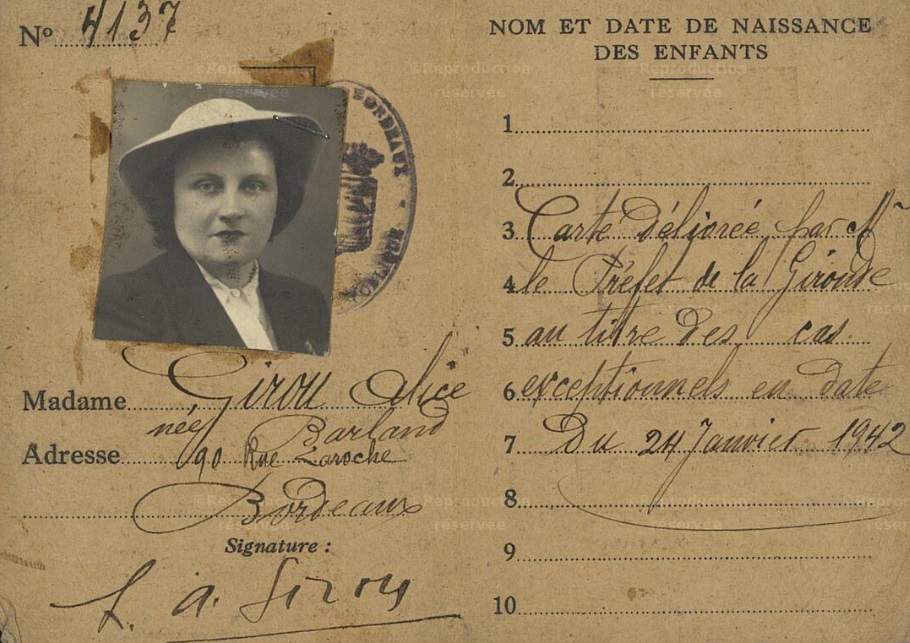 Nº 4137
BORDEAUX
Madame Girou Alice
née Barland
Adresse 90 Rue Laroche
Bordeaux
Signature :
A. Girou
NOM ET DATE DE NAISSANCE
DES ENFANTS
1
2
3 Carte délivrée par Mr
4 le Préfet de la Gironde
5 au titre des cas
6 exceptionnels en date
7 Du 24 Janvier 1942
8
9
10
©Reproduction
réservée
©Reproduction
réservée
©Reproduction
réservée
©Reproduction
réservée